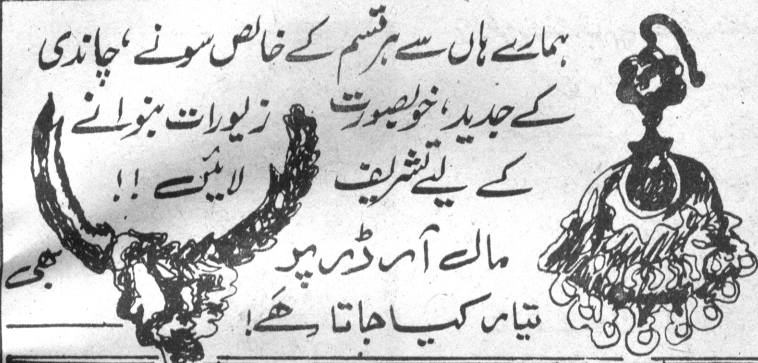 ہمارے ہاں سے ہر قسم کے خالص سونے، چاندی
کے جدید، خوبصورت زیورات بنوانے
کے لیے تشریف لائیں !!
مال آرڈر پر
بھی
تیار کیا جاتا ہے!